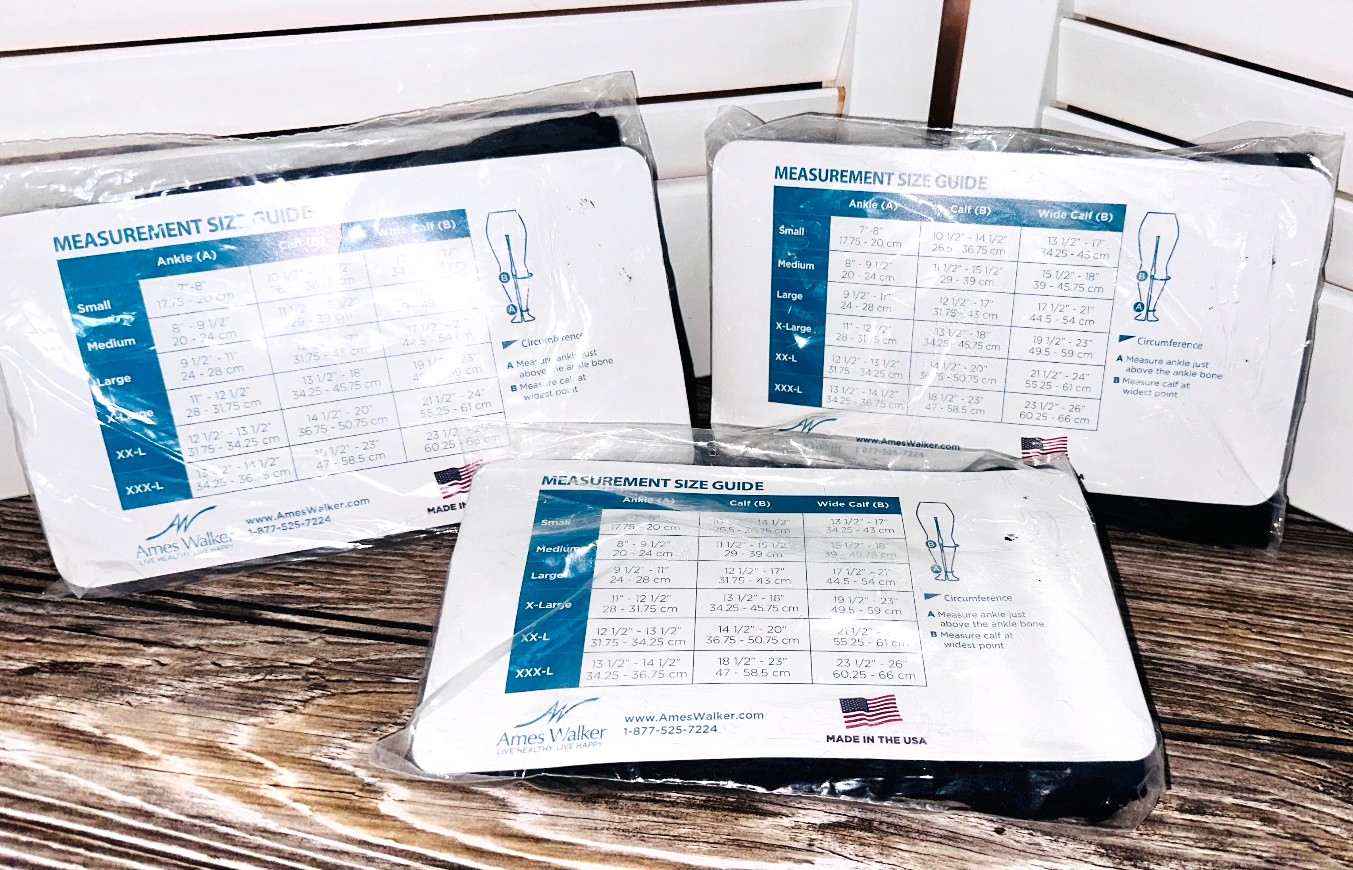 MEASUREMENT SIZE GUIDE
Ankle (A) Calf (B) Wide Calf (B)
Small 7"-8"
17.75 - 20 cm
Medium 8" - 9 1/2" 11 1/2"
20 - 24 cm 29 - 39 cm
Large 9 1/2" - 11" 17 1/2" - 21"
24 - 28 cm 31.75 44.5 - 54 cm
X-Large 11" - 12 1/2" 13 1/2" - 18" 19 - 23"
28 - 31.75 cm 34.25 - 45.75 cm
XX-L 12 1/2" - 13 1/2" 14 1/2" - 20" 21 1/2" - 24"
31.75 - 34.25 cm 36.75 - 50.75 cm 55.25 - 61 cm
XXX-L - 23" 23 1/2"
34.25 47 - 58.5 cm 60.25 - 66 cm
B
A
Circumference
A Measure ankle just
above the ankle bone
B Measure calf at
widest point
Ames Walker
LIVE HEALTHY LIVE HAPPY
www.AmesWalker.com
1-877-525-7224
MADE
MEASUREMENT SIZE GUIDE
Ankle (A) Calf (B) Wide Calf (B)
Small 7"-8" 10 1/2" - 14 1/2" 13 1/2" - 17"
17.75 - 20 cm 26.5 - 36.75 cm 34.25 - 43 cm
Medium 8" - 9 1/2" 11 1/2" - 15 1/2" 15 1/2" - 18"
20 - 24 cm 29 - 39 cm 39 - 45.75 cm
Large 9 1/2" - 11" 12 1/2" - 17" 17 1/2" - 21"
24 - 28 cm 31.75 - 43 cm 44.5 - 54 cm
X-Large 11" - 12 1/2" 13 1/2" - 18" 19 1/2" - 23"
28 - 31.75 cm 34.25 - 45.75 cm 49.5 - 59 cm
XX-L 12 1/2" - 13 1/2" 14 1/2" - 20" 21 1/2" - 24"
31.75 - 34.25 cm 36.75 - 50.75 cm 55.25 - 61 cm
XXX-L 13 1/2" - 14 1/2" 18 1/2" - 23" 23 1/2" - 26"
34.25 - 36.75 cm 47 - 58.5 cm 60.25 - 66 cm
B
A
Circumference
A Measure ankle just
above the ankle bone
B Measure calf at
widest point
www.AmesWalker.com
1-877-525-7224
MEASUREMENT SIZE GUIDE
Ankle (A) Calf (B) Wide Calf (B)
Small 14 1/2" 13 1/2" - 17"
17.75 - 20 cm 26.5 - 36.75 cm 34.25 - 43 cm
Medium 8" - 9 1/2" 11 1/2" - 15 1/2" 15 1/2" - 18"
20 - 24 cm 29 - 39 cm 39 - 45.75 cm
Large 9 1/2" - 11" 12 1/2" - 17" 17 1/2" - 21"
24 - 28 cm 31.75 - 43 cm 44.5 - 54 cm
X-Large 11" - 12 1/2" 13 1/2" - 18" 19 1/2" - 23"
28 - 31.75 cm 34.25 - 45.75 cm 49.5 - 59 cm
XX-L 12 1/2" - 13 1/2" 14 1/2" - 20" 21 1/2" -
31.75 - 34.25 cm 36.75 - 50.75 cm 55.25 - 61 cm
XXX-L 13 1/2" - 14 1/2" 18 1/2" - 23" 23 1/2" - 26"
34.25 - 36.75 cm 47 - 58.5 cm 60.25 - 66 cm
B
A
Circumference
A Measure ankle just
above the ankle bone
B Measure calf at
widest point
Ames Walker
LIVE HEALTHY LIVE HAPPY
www.AmesWalker.com
1-877-525-7224
MADE IN THE USA